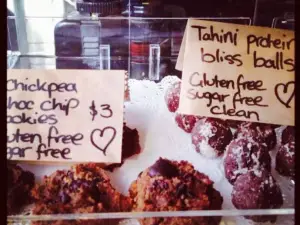 Chickpea
choc chip
cookies $3
Gluten free
sugar free
Tahini protein
bliss balls
Gluten free
sugar free
clean